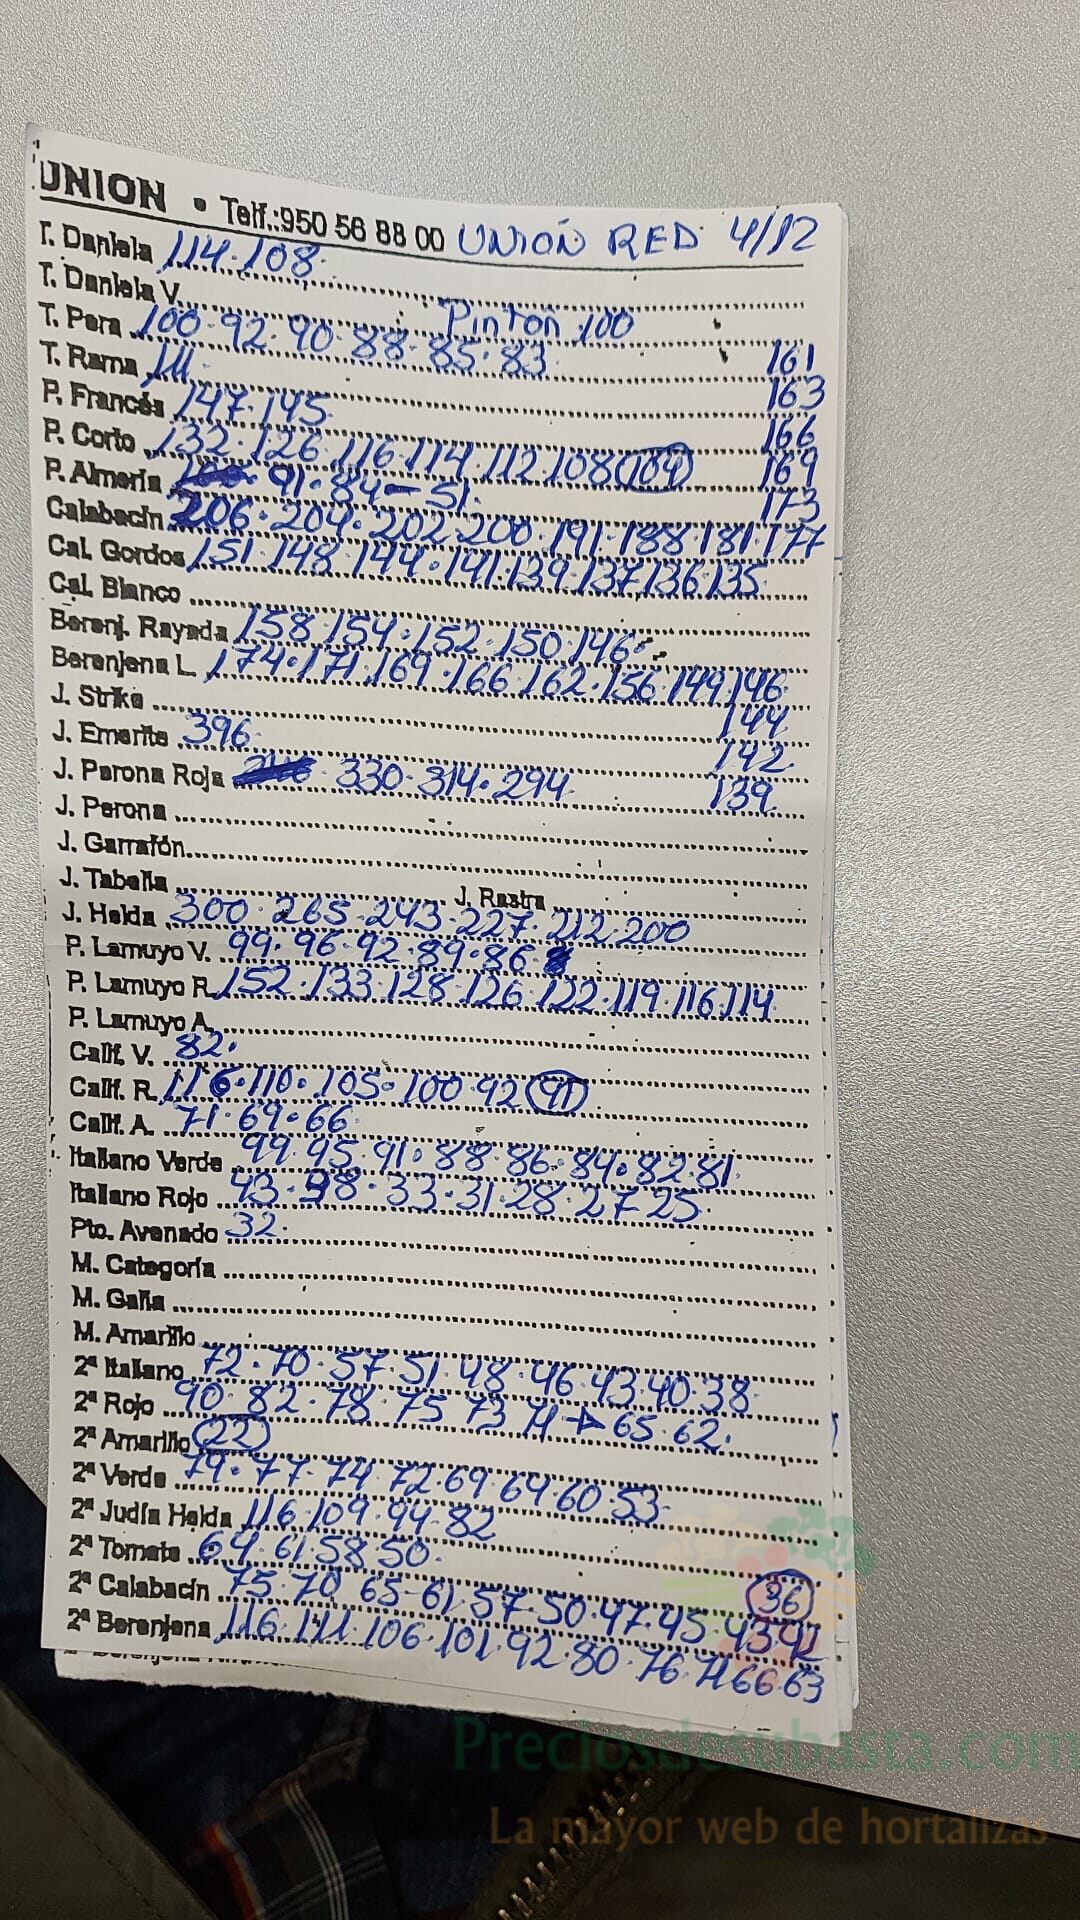 UNION • Telf.:950 56 88 00 UNIÓN RED 4/12
T. Daniela 114.108.
T. Daniela V. Pinton 100
T. Pera 100.92.90.88.85.83
T. Rama 111. 161
P. Francés 147.145 163
P. Corto 132.126.116.114.112.108 (104) 166
P. Almería 91.84-51. 169
173
Calabacín 206.204.202.200.191.188.181.177
Cal. Gordos 151.148.144.141.139.137.136.135
Cal. Blanco
Berenj. Rayada 158.154.152.150.146
Berenjena L. 174.171.169.166.162.156.149.146
J. Strike 144
J. Emerite 396. 142
J. Perona Roja 330.314.294 139
J. Perona
J. Garrafón
J. Tabella J. Rastra
J. Helda 300.265.243.227.212.200
P. Lamuyo V. 99.96.92.89.86.
P. Lamuyo R. 152.133.128.126.122.119.116.114
P. Lamuyo A.
Calif. V. 82.
Calif. R. 116.110.105.100.92 (91)
Calif. A. 71.69.66
Italiano Verde 99.95.91.88.86.84.82.81.
Italiano Rojo 43.38.33.31.28.27.25
Pto. Avenado 32.
M. Categoría
M. Galia
M. Amarillo
2ª Italiano 72.70.57.51.48.46.43.40.38
2ª Rojo 90.82.78.75.73.71→65.62.
2ª Amarillo (22)
2ª Verde 79.77.74.72.69.64.60.53
2ª Judía Helda 116.109.94.82
2ª Tomate 64.61.58.50.
2ª Calabacín 75.70.65-61.57.50.47.45.43.42 (36)
2ª Berenjena 116.111.106.101.92.80.76.71.66.63
Preciosdesubasta.com
La mayor web de hortalizas